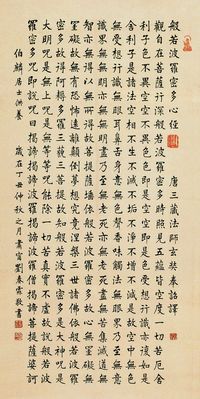 般若波羅密多心經 唐三藏法師玄奘奉詔譯
觀自在菩薩行深般若波羅密多時照見五蘊皆空度一切苦厄舍
利子色不異空空不異色色即是空空即是色受想行識亦復如是
舍利子是諸法空相不生不滅不垢不淨不增不減是故空中無色
無受想行識無眼耳鼻舌身意無色聲香味觸法無眼界乃至無意
識界無無明亦無無明盡乃至無老死亦無老死盡無苦集滅道無
智亦無得以無所得故菩提薩埵依般若波羅密多故心無罣礙無
罣礙故無有恐怖遠離顛倒夢想究竟涅槃三世諸佛依般若波羅
密多故得阿耨多羅三藐三菩提故知般若波羅密多是大神咒是
大明咒是無上咒是無等等咒能除一切苦真實不虛故說般若波羅
密多咒即說咒曰揭諦揭諦波羅揭諦波羅僧揭諦菩提薩婆訶
伯麟居士供養 歲在丁丑仲秋之月肅寧劉春霖敬書